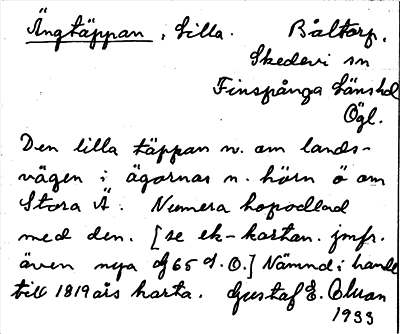 Ängtäppan, Lilla. Båltorp.
Skedevi sn
Finspånga länshd
Ögl.
Den lilla täppan n. om lands-
vägen i ägornas n. hörn ö om
Stora Ä. Numera hopodlad
med den. [se ek-kartan. jmfr.
även nya df 65 d. O.] Nämnd i handl
till 1819 års karta. Gustaf E. Olsson
1933